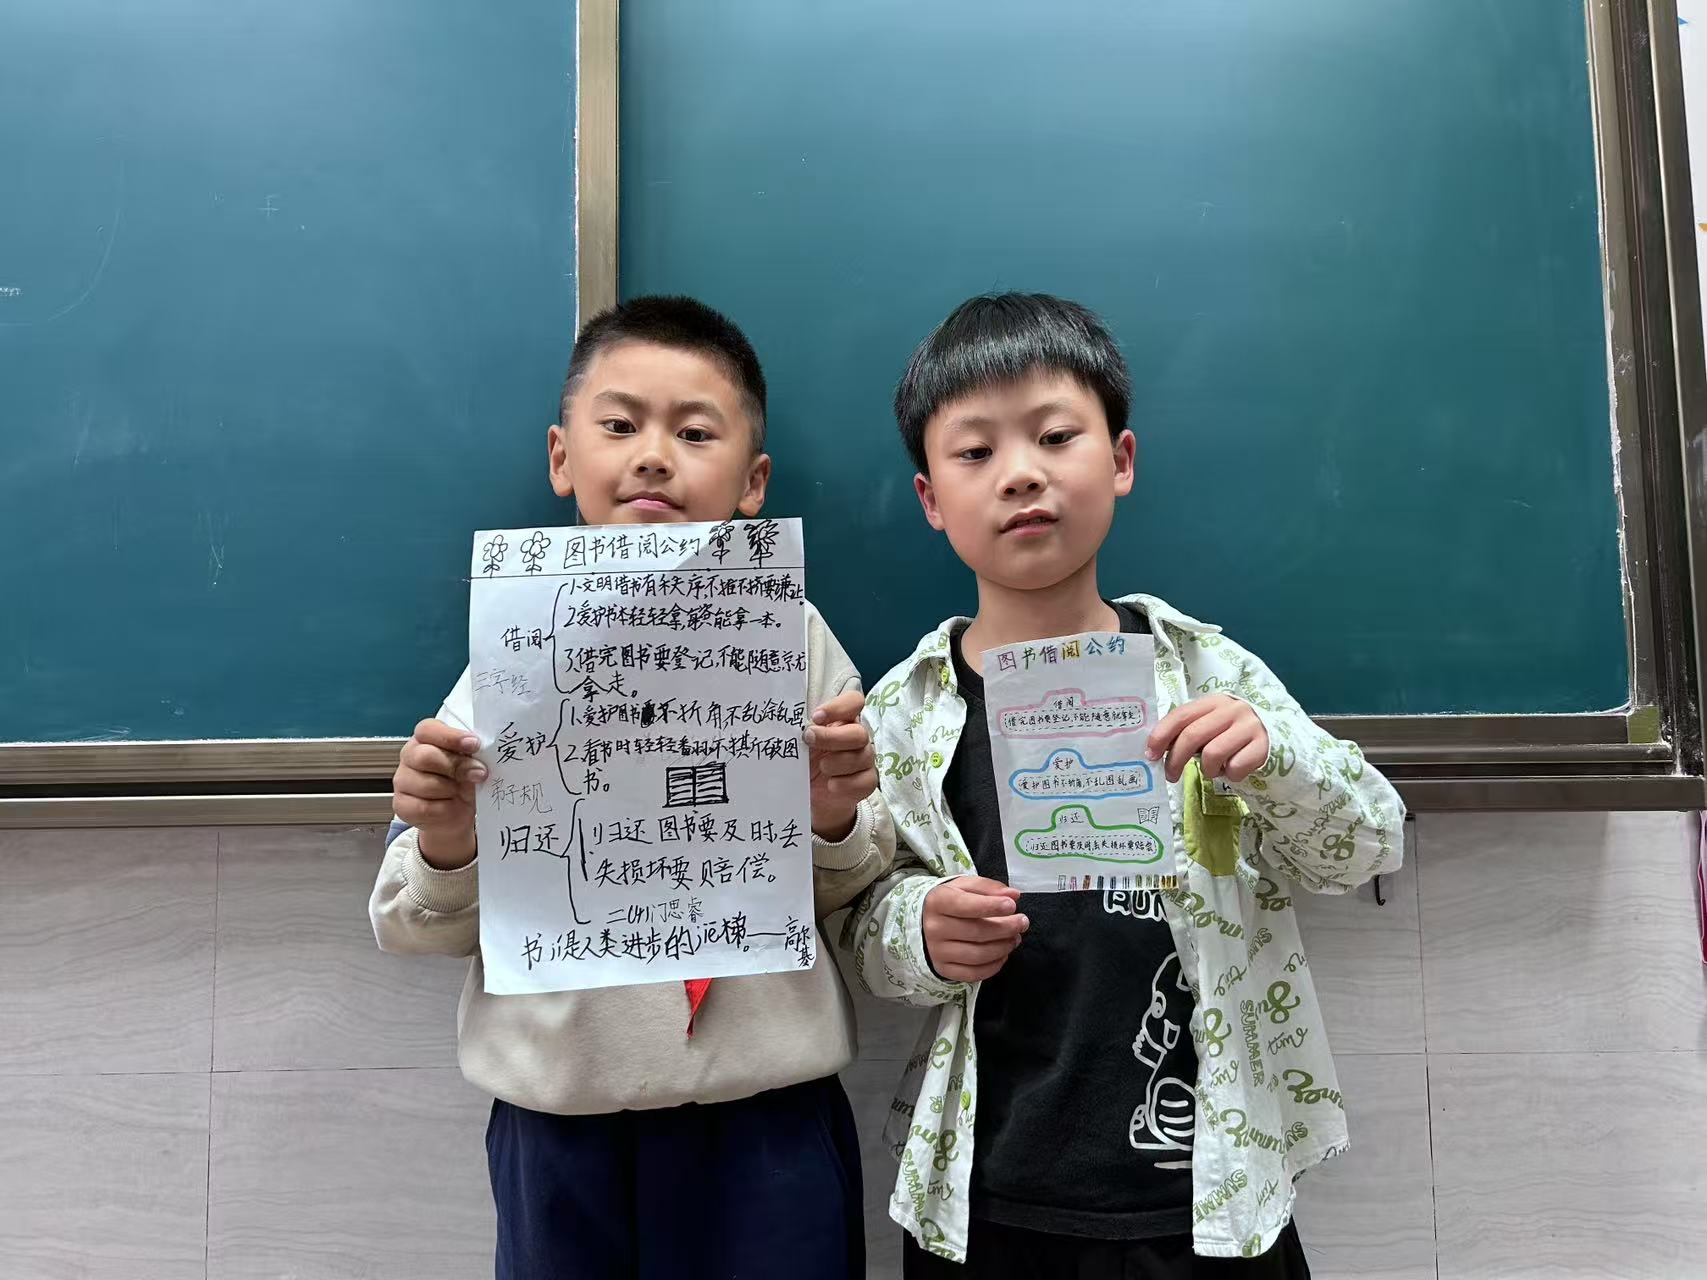 图书借阅公约
借阅
1.文明借书有秩序,不推不挤要谦让。
2.爱护书本轻轻拿,每次只能拿一本。
3.借完图书要登记,不能随意就
拿走。
三字经
爱护
1.爱护图书不折角,不乱涂乱画
2.看书时轻轻翻,不撕破图
书。
弟子规
归还
1.归还图书要及时丢
失损坏要赔偿。
二(4)门思睿
书是人类进步的阶梯。——高尔基
图书借阅公约
借阅
借完图书要登记,不能随意就拿走
爱护
爱护图书不折角,不乱图乱画
归还
归还图书要及时丢失损坏要赔偿
RUN
SUMMER
time